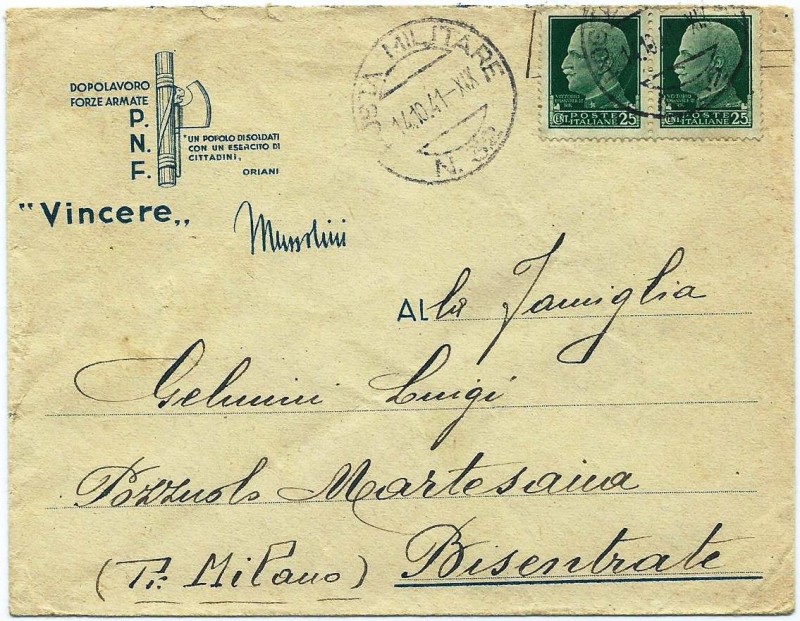 DOPOLAVORO
FORZE ARMATE
P.
N.
F.
"UN POPOLO DI SOLDATI
CON UN ESERCITO DI
CITTADINI„
ORIANI
"Vincere„
Mussolini
POSTA MILITARE
14.10.41-XIX
N.
VITTORIO
EMANUELE
CENT. POSTE ITALIANE 25
CENT. POSTE ITALIANE 25
Alla Famiglia
Gelmini Luigi
Pozzuolo Martesana
(Pr. Milano) Bisentrate